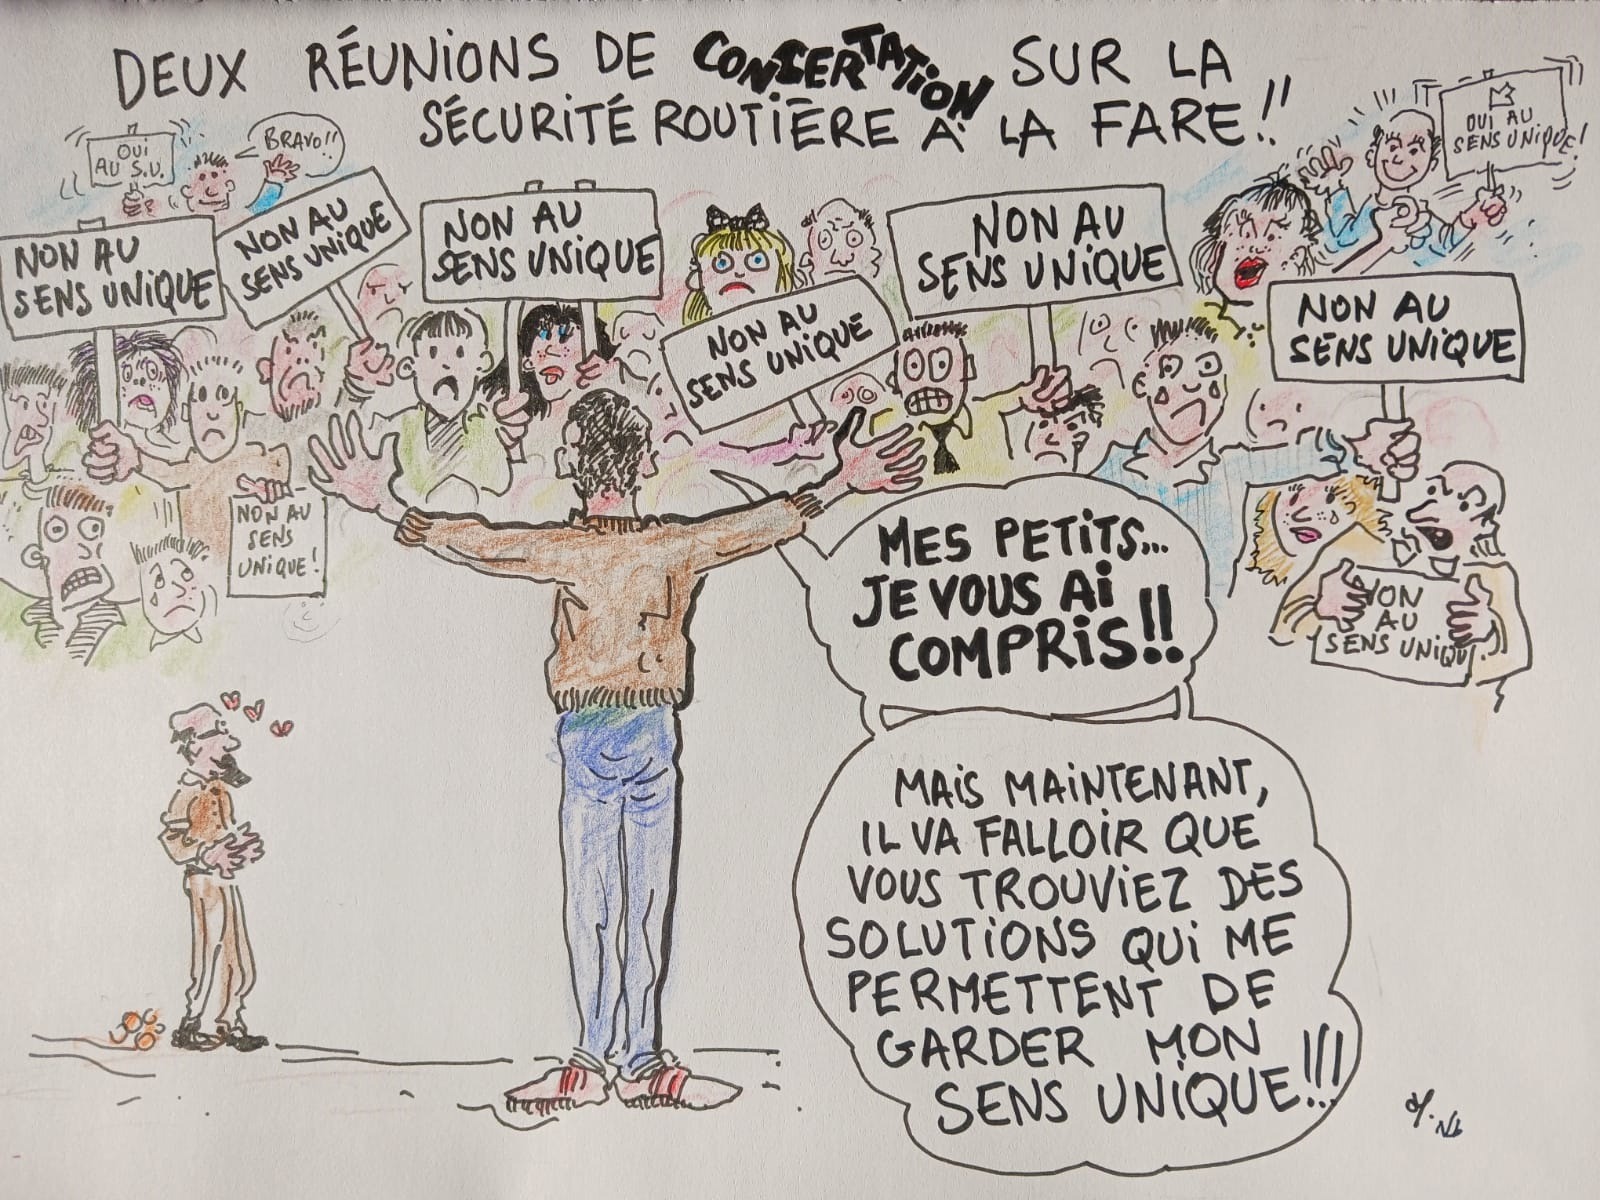 DEUX RÉUNIONS DE CONCERTATION SUR LA
SÉCURITÉ ROUTIÈRE À LA FARE!!
OUI
AU S.U.
BRAVO!!
OUI AU
SENS UNIQUE!
NON AU
SENS UNIQUE
NON AU
SENS UNIQUE
NON AU
SENS UNIQUE
NON AU
SENS UNIQUE
NON AU
SENS UNIQUE
NON AU
SENS UNIQUE
NON AU
SENS
UNIQUE!
NON
AU
SENS UNIQU
MES PETITS...
JE VOUS AI
COMPRIS!!
MAIS MAINTENANT,
IL VA FALLOIR QUE
VOUS TROUVIEZ DES
SOLUTIONS QUI ME
PERMETTENT DE
GARDER MON
SENS UNIQUE!!!